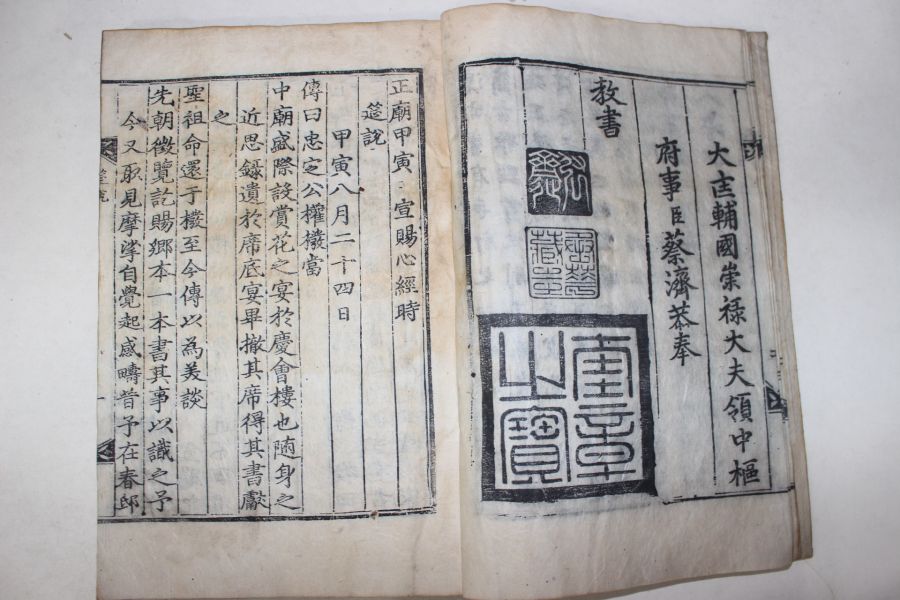 大匡輔國崇祿大夫領中樞
府事臣蔡濟恭奉
教書
奎章之寶
正廟甲寅 宣賜心經時
筵說
甲寅八月二十四日
傳曰忠定公權橃當
中廟盛際設賞花之宴於慶會樓也隨身之
近思錄遺於席底宴畢撤其席得其書獻
之
聖祖命還于橃至今傳以為美談
先朝徵覽訖賜鄉本一本書其事以識之予
今又取見摩挲自覺起感疇昔予在春邸
筵說
一